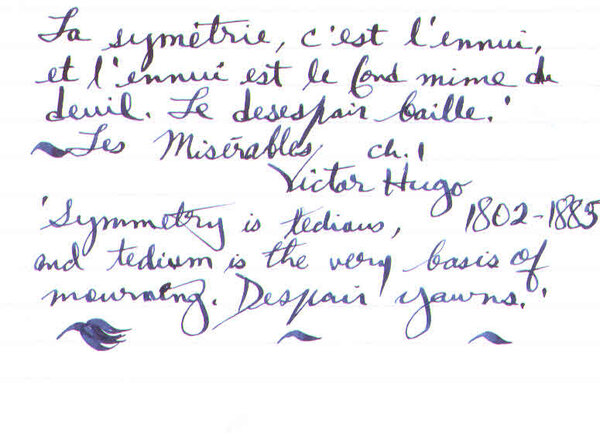 La symétrie, c'est l'ennui,
et l'ennui est le fond mime du
deuil. Le desespair baille.'
Les Misérables, ch. 1
Victor Hugo
1802-1885
'Symmetry is tedious,
and tedium is the very basis of
mourning. Despair yawns.'